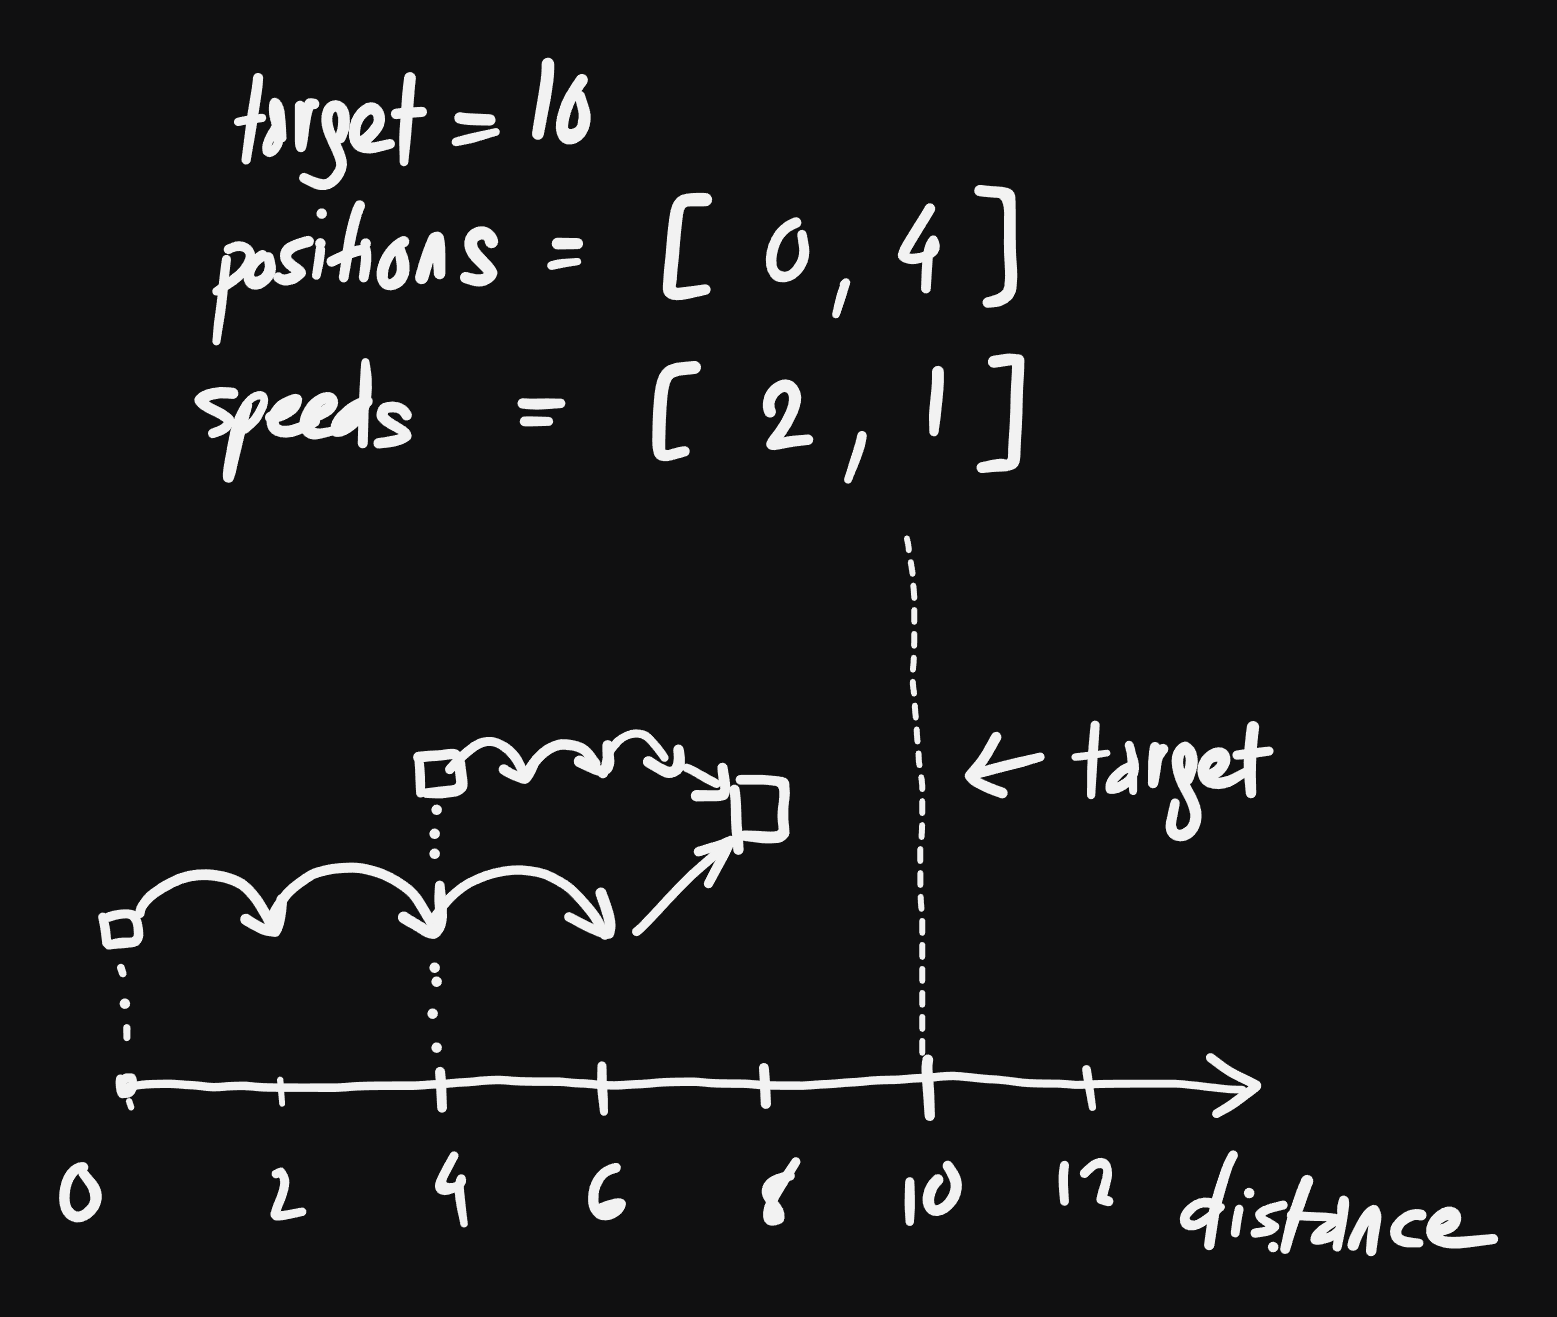 target = 10
positions = [ 0, 4 ]
speeds = [ 2, 1 ]
← target
0 2 4 6 8 10 12 distance